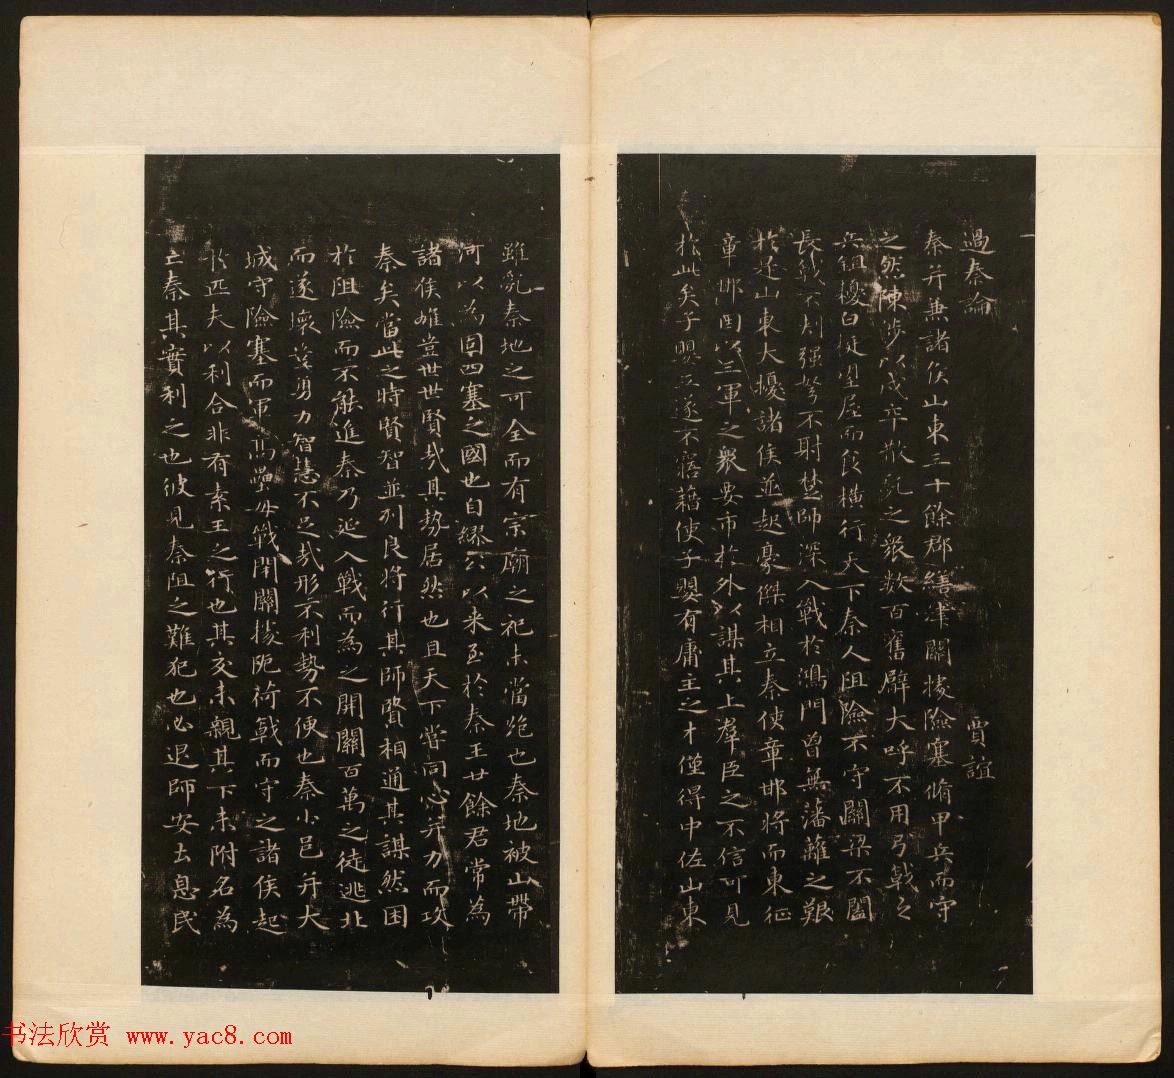 過秦論 賈誼
秦并兼諸侯山東三十餘郡繕津關據險塞脩甲兵而守
之然陳涉以戍卒散亂之眾數百奮臂大呼不用弓戟之
兵鉏櫌白梃望屋而食橫行天下秦人阻險不守關梁不闔
長戟不刺強弩不射楚師深入戰於鴻門曾無藩離之艱
於是山東大擾諸侯並起豪傑相立秦使章邯將而東征
章邯因以三軍之眾要市於外以謀其上羣臣之不信可見
於此矣子嬰立遂不寤藉使子嬰有庸主之才僅得中佐山東
雖亂秦地之可全而有宗廟之祀未當絕也秦地被山帶
河以為固四塞之國也自繆公以來至於秦王廿餘君常為
諸侯雄豈世世賢哉其勢居然也且天下嘗同心并力而攻
秦矣當此之時賢智並列良將行其師賢相通其謀然困
於阻險而不能進秦乃延入戰而為之開關百萬之徒逃北
而遂壞豈勇力智慧不足哉形不利勢不便也秦小邑并大
城守險塞而軍高壘毋戰閉關據阨荷戟而守之諸侯起
於匹夫以利合非有素王之行也其交未親其下未附名為
亡秦其實利之也彼見秦阻之難犯也必退師安土息民
书法欣赏 www.yac8.com